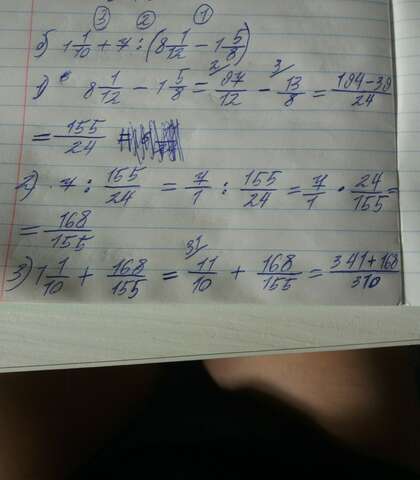 ③ ② ①
б) 1 1/10 + 7 : (8 1/12 - 1 5/8)
1) 8 1/12 - 1 5/8 = 2/ 97/12 - 3/ 13/8 = 194-39/24
= 155/24
2) 7 : 155/24 = 7/1 : 155/24 = 7/1 · 24/155 =
= 168/155
3) 1 1/10 + 168/155 = 31/ 11/10 + 168/155 = 341+168/310